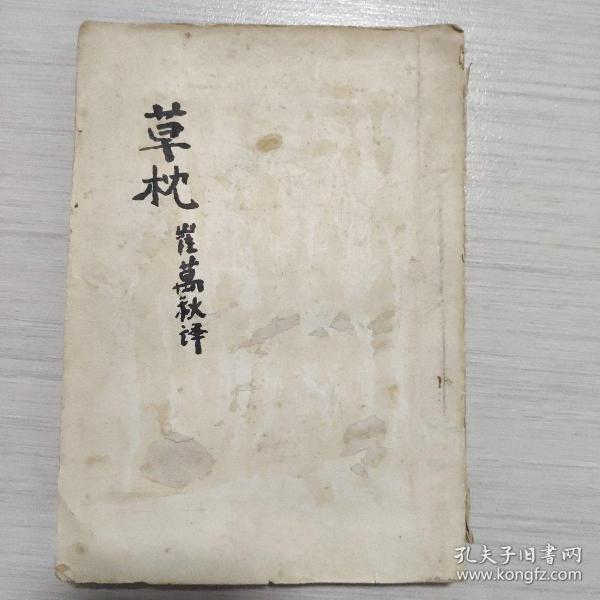 草枕
崔萬秋译
孔夫子旧书网
www.kongfz.com